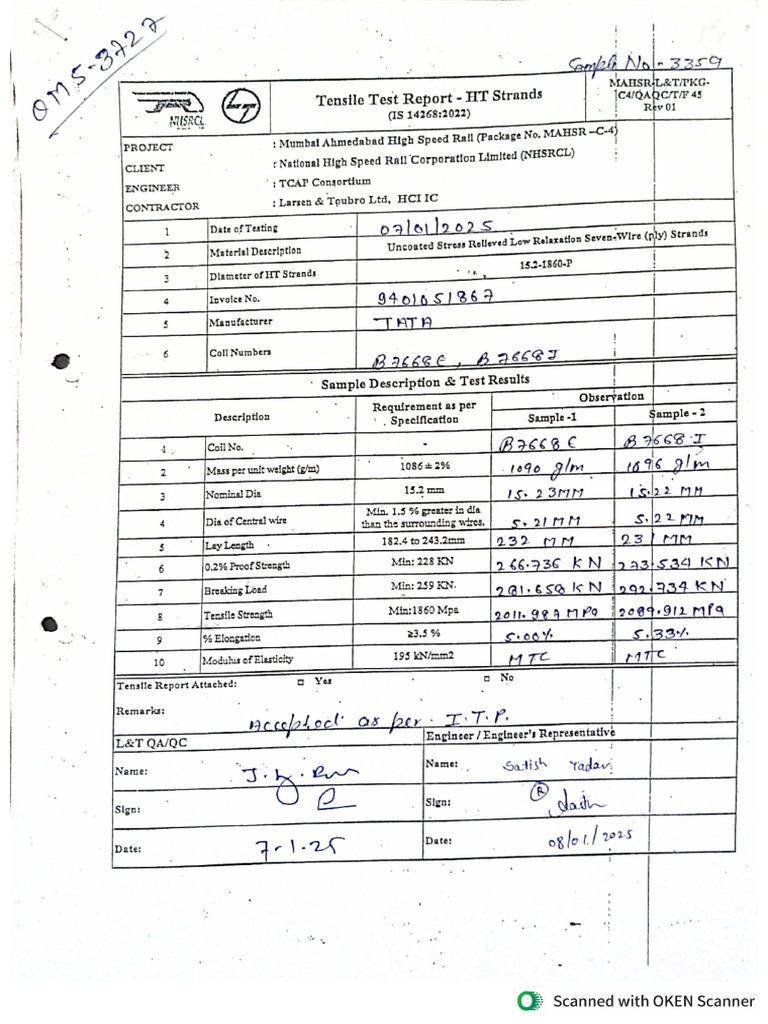 OMS-3727
Sample No - 3359
NHSRCL
LT
Tensile Test Report - HT Strands
(IS 14268:2022)
MAHSR-L&T/PKG-
C4/QAQC/T/F 45
Rev 01
PROJECT : Mumbai Ahmedabad High Speed Rail (Package No. MAHSR –C-4)
CLIENT : National High Speed Rail Corporation Limited (NHSRCL)
ENGINEER : TCAP Consortium
CONTRACTOR : Larsen & Toubro Ltd, HCI IC
1 Date of Testing 07/01/2025
2 Material Description Uncoated Stress Relieved Low Relaxation Seven-Wire (ply) Strands
3 Diameter of HT Strands 15.2-1860-P
4 Invoice No. 9401051867
5 Manufacturer TATA
6 Coil Numbers B7668E, B7668I
Sample Description & Test Results
Description Requirement as per Specification Observation
Sample -1 Sample - 2
1 Coil No. - B7668E B7668I
2 Mass per unit weight (g/m) 1086 ± 2% 1090 g/m 1096 g/m
3 Nominal Dia 15.2 mm 15.23MM 15.22 MM
4 Dia of Central wire Min. 1.5 % greater in dia than the surrounding wires. 5.21MM 5.22 MM
5 Lay Length 182.4 to 243.2mm 232 MM 231 MM
6 0.2% Proof Strength Min: 228 KN 266.736 KN 273.534 KN
7 Breaking Load Min: 259 KN. 281.658 KN 292.734 KN
8 Tensile Strength Min:1860 Mpa 2011.987 MPa 2089.912 MPa
9 % Elongation ≥3.5 % 5.00% 5.33%
10 Modulus of Elasticity 195 kN/mm2 MTC MTC
Tensile Report Attached: □ Yes □ No
Remarks: Accepted as per I.T.P.
L&T QA/QC Engineer / Engineer's Representative
Name: Name: Satish Yadav
Sign: Sign:
Date: 7-1-25 Date: 08/01/2025
Scanned with OKEN Scanner